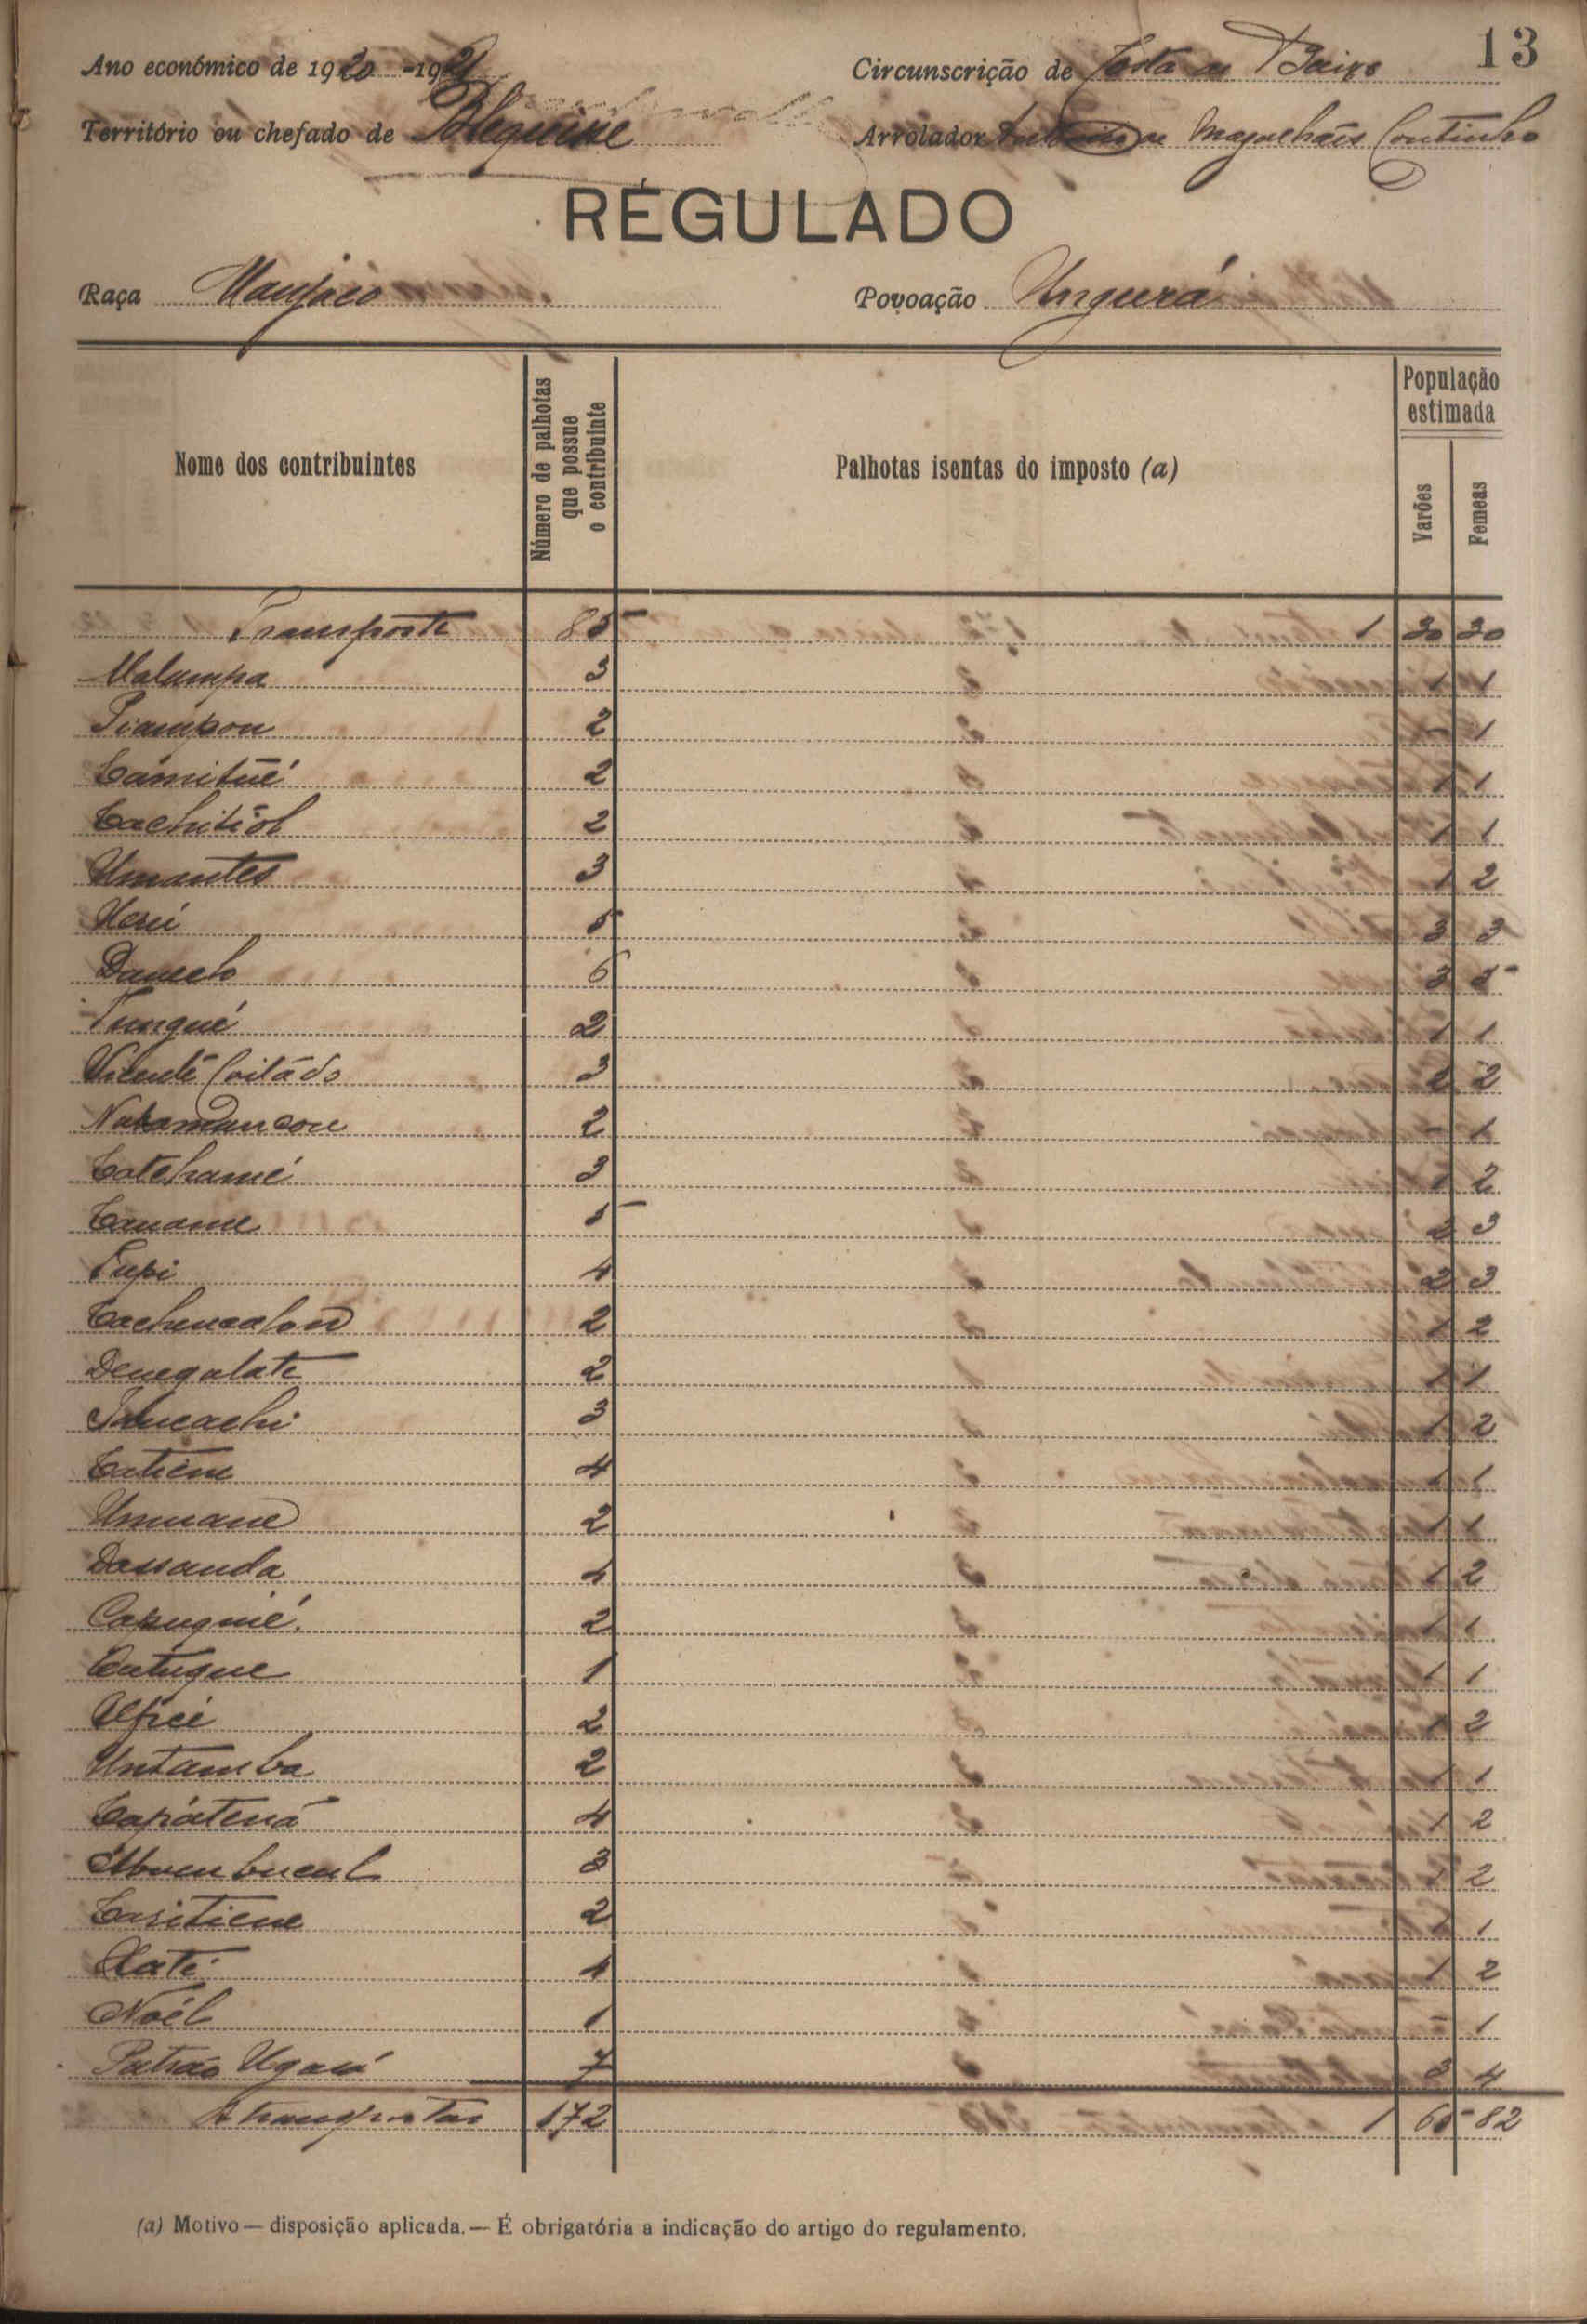 13
Ano económico de 1920-1921 Circunscrição de Costa de Baixo
Território ou chefado de Blequisse Arrolador de Magalhãis Coutinho
RÉGULADO
Raça Manjaco Povoação Ungurá
Nome dos contribuintes
Número de palhotas que possue o contribuinte
Palhotas isentas do imposto (a)
População estimada
Varões
Femeas
Transporte 85 1 30 30
Malampa 3 1 1
Piampou 2 - 1
Camitúé 2 1 1
Cachitiól 2 1 1
Umantes 3 1 2
Uerú 5 3 3
Dauech 6 3 5
Tungué 2 1 1
Vicente Coitádo 3 2 2
2 - 1
Catchamé 3 1 2
Caname 5 2 3
Tupi 4 2 3
2 1 2
Denegalate 2 1 1
3 1 2
Catiene 4 1 1
Ummane 2 1 1
Dassanda 4 1 2
Capugnié 2 1 1
Catugue 1 1 1
2 1 2
Untamba 2 1 1
Capátená 4 1 2
3 1 2
Casitiene 2 1 1
Xaté 4 1 2
Noél 1 - 1
Patrão Ugará 7 3 4
A transportar 172 1 65 82
(a) Motivo — disposição aplicada. — É obrigatória a indicação do artigo do regulamento.